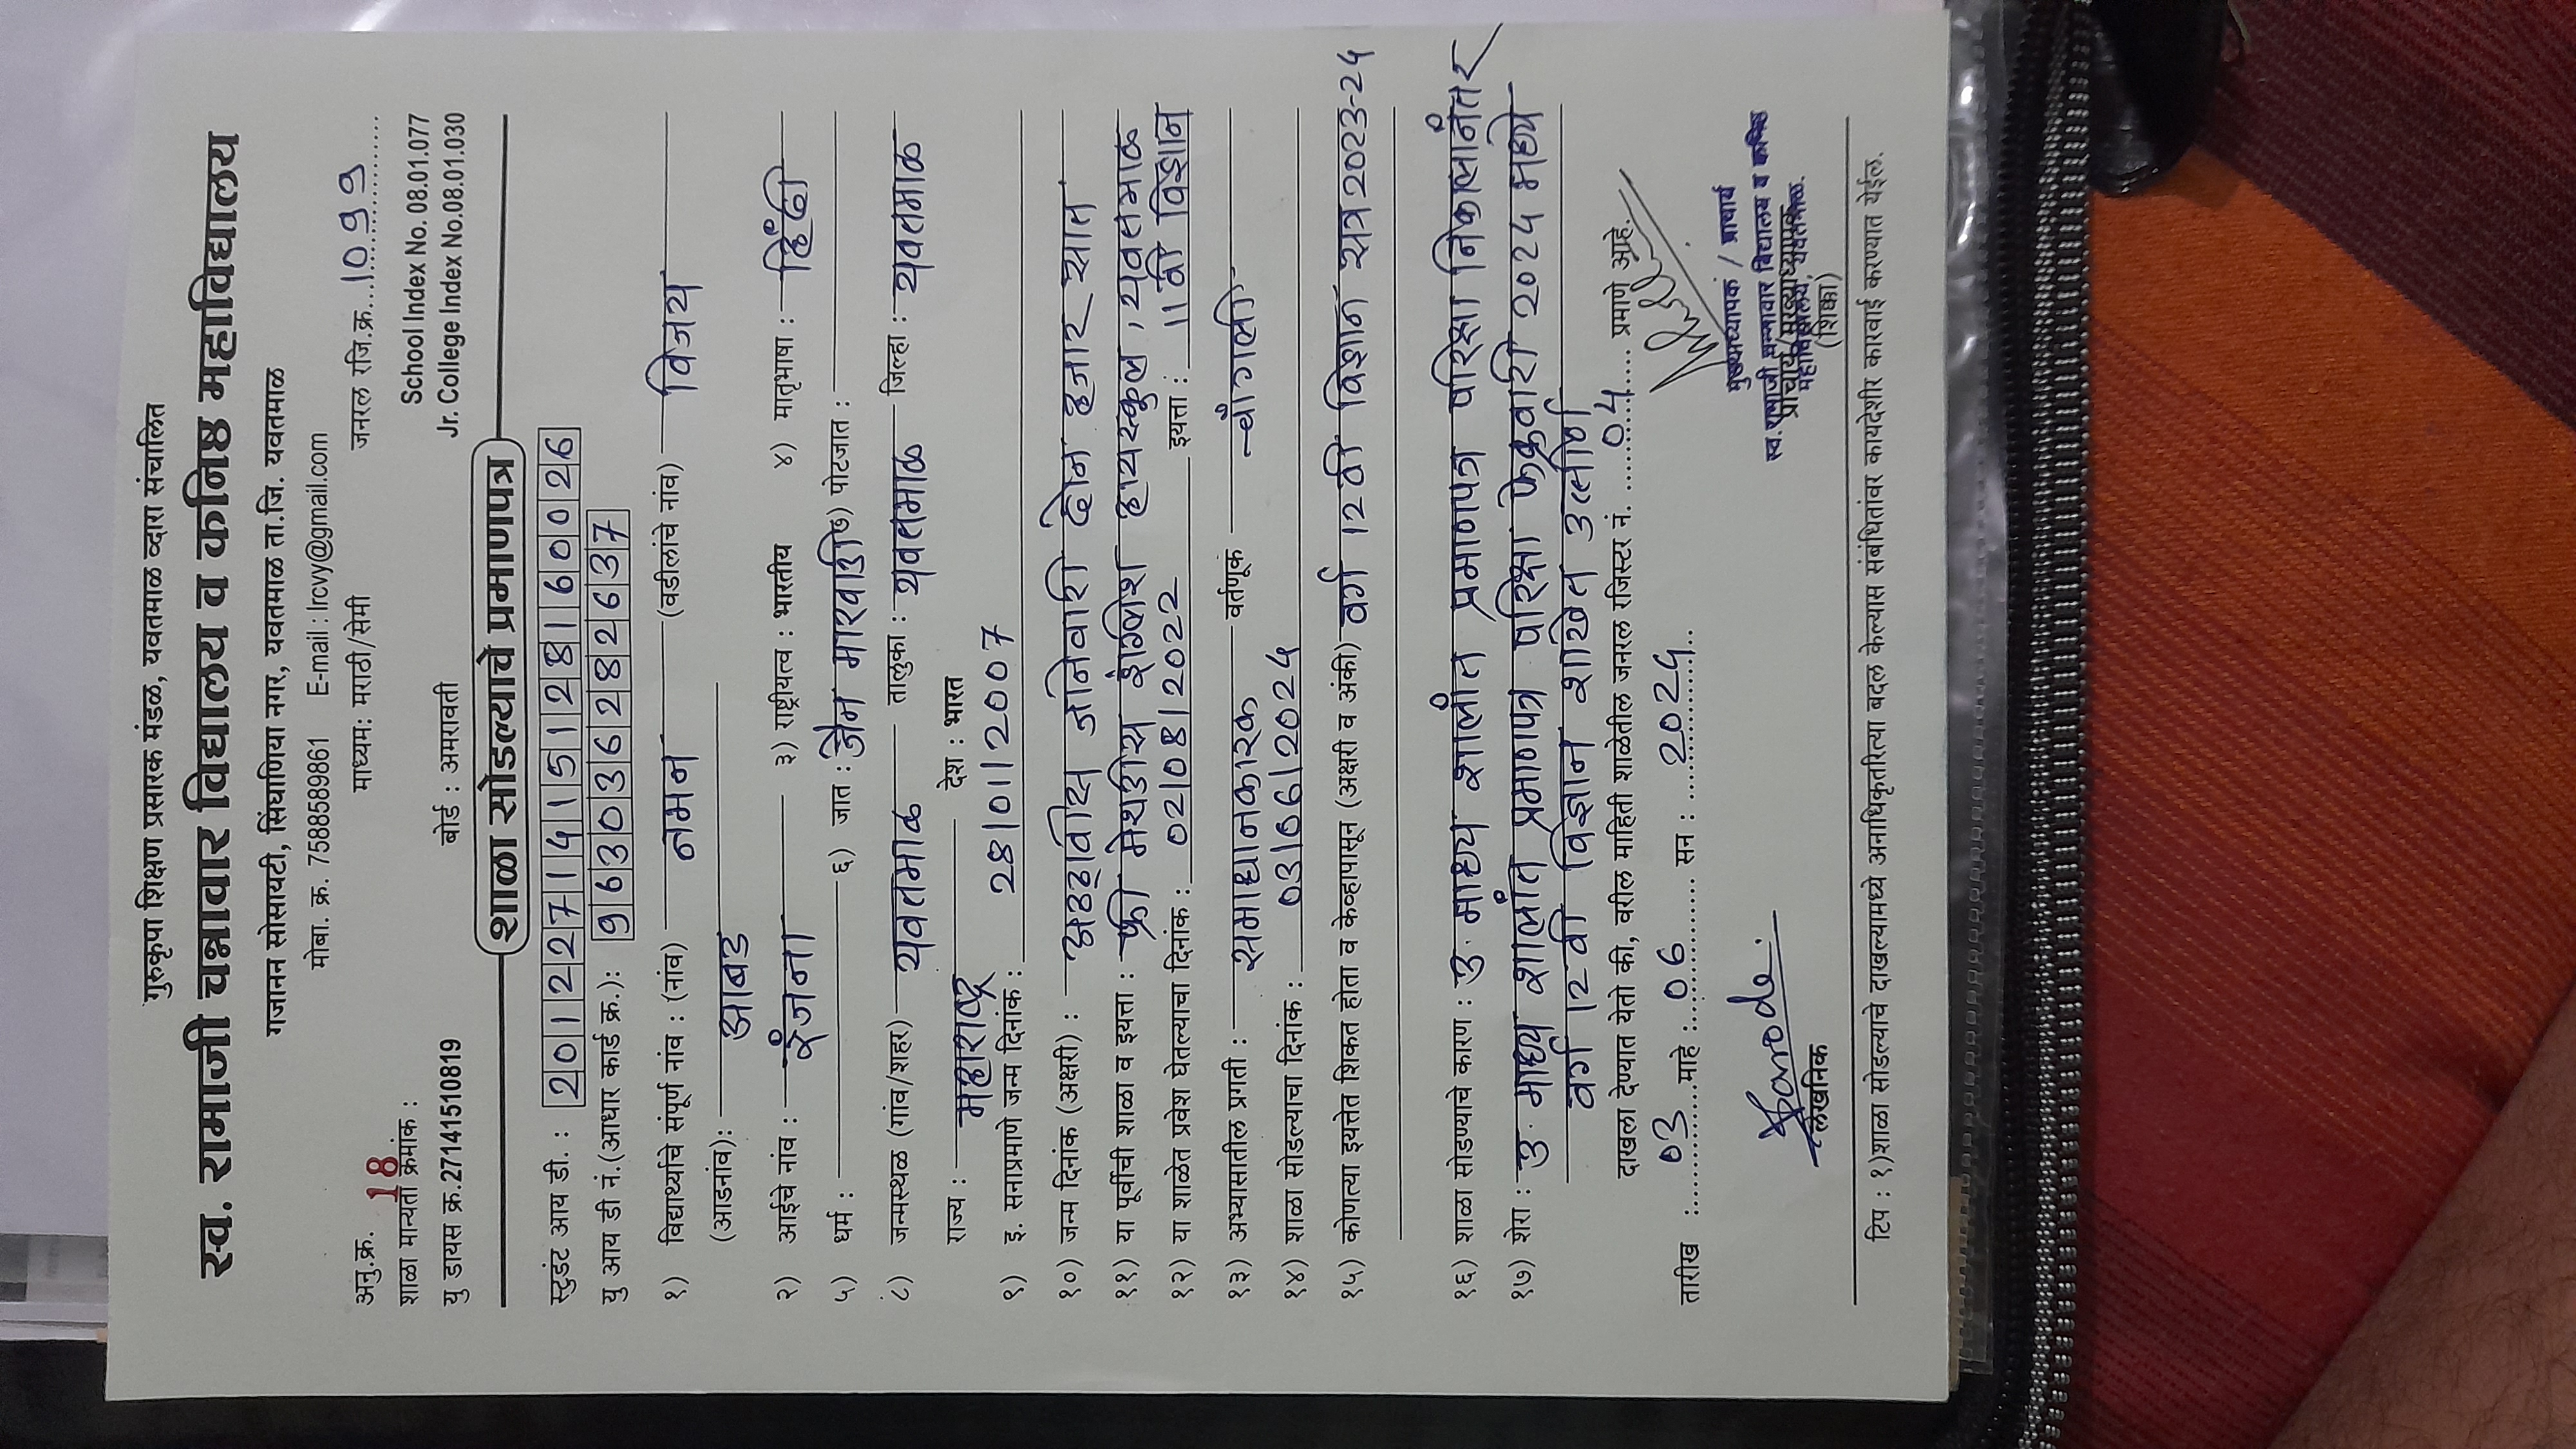 गुरुकृपा शिक्षण प्रसारक मंडळ, यवतमाळ व्दारा संचालित
स्व. रामाजी चन्नावार विद्यालय व कनिष्ठ महाविद्यालय
गजानन सोसायटी, सिंघाणिया नगर, यवतमाळ ता.जि. यवतमाळ
मोबा. क्र. 7588589861 E-mail : lrcvy@gmail.com
अनु.क्र. 18 माध्यम: मराठी/सेमी जनरल रजि.क्र. 1099
शाळा मान्यता क्रमांक : School Index No. 08.01.077
यु डायस क्र.27141510819 बोर्ड : अमरावती Jr. College Index No.08.01.030
शाळा सोडल्याचे प्रमाणपत्र
स्टुडंट आय डी. : 2012271415128160026
यु आय डी नं.(आधार कार्ड क्र.): 963036282637
१) विद्यार्थ्याचे संपूर्ण नांव : (नांव) नमन (वडीलांचे नांव) विजय
(आडनांव): आबड
२) आईचे नांव : रंजना ३) राष्ट्रीयत्व : भारतीय ४) मातृभाषा : हिंदी
५) धर्म : ६) जात : जैन मारवाडी ७) पोटजात :
८) जन्मस्थळ (गांव/शहर) यवतमाळ तालुका : यवतमाळ जिल्हा : यवतमाळ
राज्य : महाराष्ट्र देश : भारत
९) इ. सनाप्रमाणे जन्म दिनांक : 28/01/2007
१०) जन्म दिनांक (अक्षरी) : अठ्ठावीस जानेवारी दोन हजार सात
११) या पूर्वीची शाळा व इयत्ता : फ्री मेथडीस्ट इंग्लिश हायस्कुल, यवतमाळ
१२) या शाळेत प्रवेश घेतल्याचा दिनांक : 02/08/2022 इयत्ता : 11 वी विज्ञान
१३) अभ्यासातील प्रगती : समाधानकारक वर्तणूक चांगली
१४) शाळा सोडल्याचा दिनांक : 03/06/2024
१५) कोणत्या इयत्तेत शिकत होता व केव्हापासून (अक्षरी व अंकी) वर्ग 12 वी विज्ञान सत्र 2023-24
१६) शाळा सोडण्याचे कारण : उ. माध्य शालांत प्रमाणपत्र परिक्षा निकालानंतर
१७) शेरा : उ. माध्य शालांत प्रमाणपत्र परिक्षा फेब्रुवारी 2024 मध्ये
वर्ग 12 वी विज्ञान शाखेत उत्तीर्ण
दाखला देण्यात येतो की, वरील माहिती शाळेतील जनरल रजिस्टर नं. 04 प्रमाणे आहे.
तारीख : 03 माहे : 06 सन : 2024
लेखनिक
मुख्याध्यापक / प्राचार्य
स्व. रामाजी चन्नावार विद्यालय व कनिष्ठ
प्राचार्य/मुख्याध्यापक
महाविद्यालय, यवतमाळ.
(शिक्का)
टिप : १)शाळा सोडल्याचे दाखल्यामध्ये अनाधिकृतरित्या बदल केल्यास संबंधितांवर कायदेशीर कारवाई करण्यात येईल.